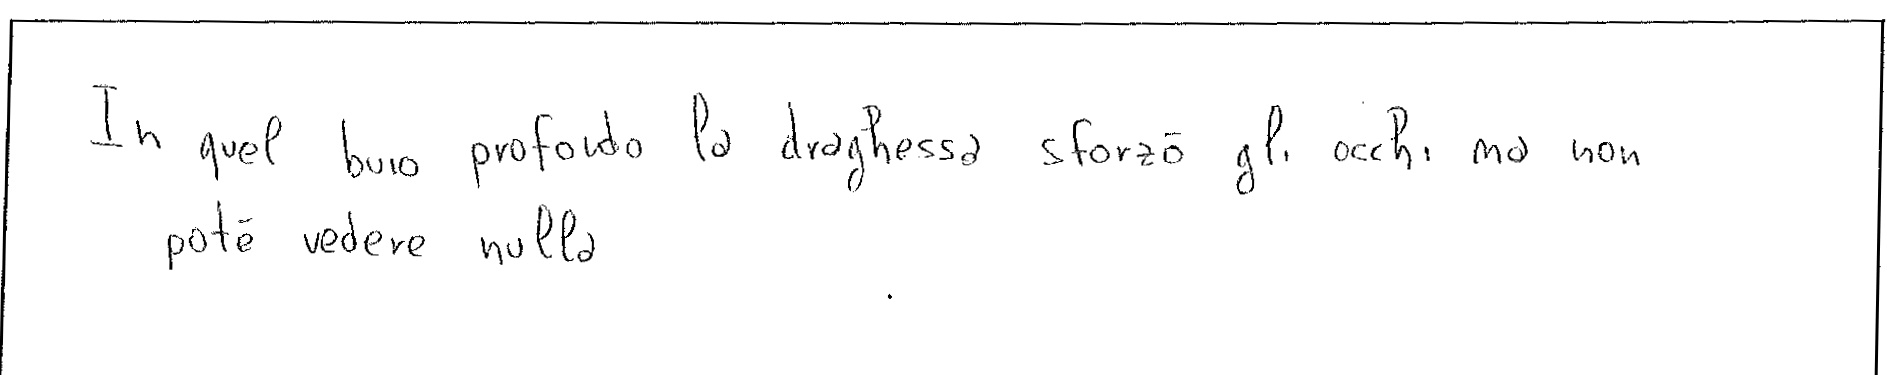 In quel buio profondo la draghessa sforzō gli occhi ma non
potē vedere nulla